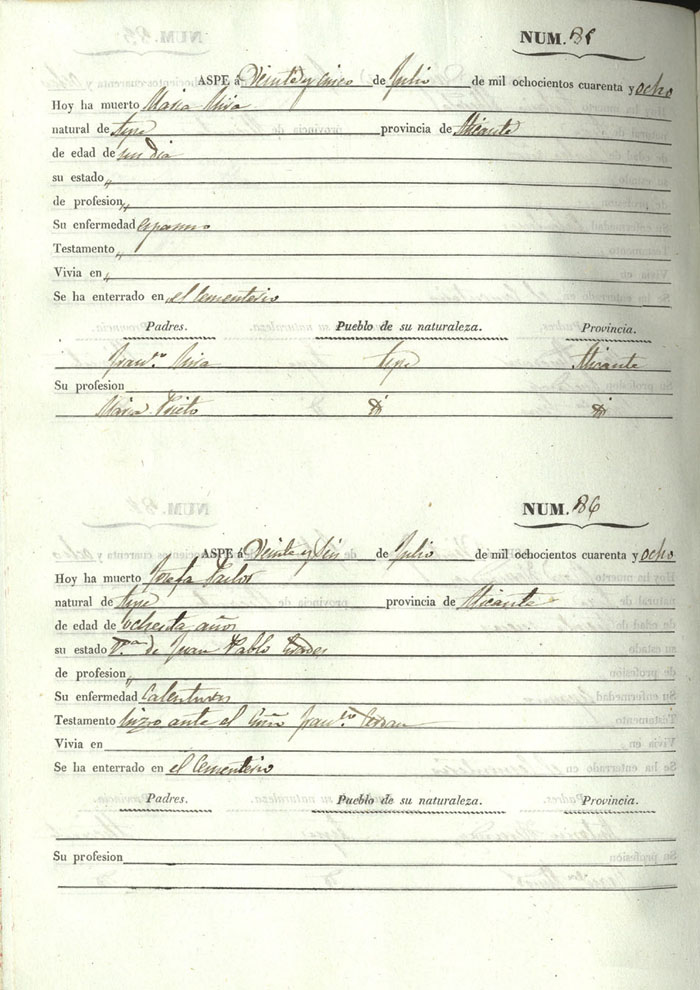 NUM. 85
ASPE á Veinte y cinco de Julio de mil ochocientos cuarenta y ocho
Hoy ha muerto Maria Mira
natural de Aspe provincia de Alicante
de edad de un dia
su estado "
de profesion "
Su enfermedad espasmo
Testamento "
Vivia en "
Se ha enterrado en el Cementerio
Padres. Pueblo de su naturaleza. Provincia.
Fran.co Mira Aspe Alicante
Su profesion
Maria Prieto
NUM. 86
ASPE á Veinte y seis de Julio de mil ochocientos cuarenta y ocho
Hoy ha muerto Josefa Pastor
natural de Aspe provincia de Alicante
de edad de ochenta años
su estado V.da de Juan Pablo
de profesion "
Su enfermedad Calenturas
Testamento hizo ante el Fran.co
Vivia en
Se ha enterrado en el Cementerio
Padres. Pueblo de su naturaleza. Provincia.
Su profesion